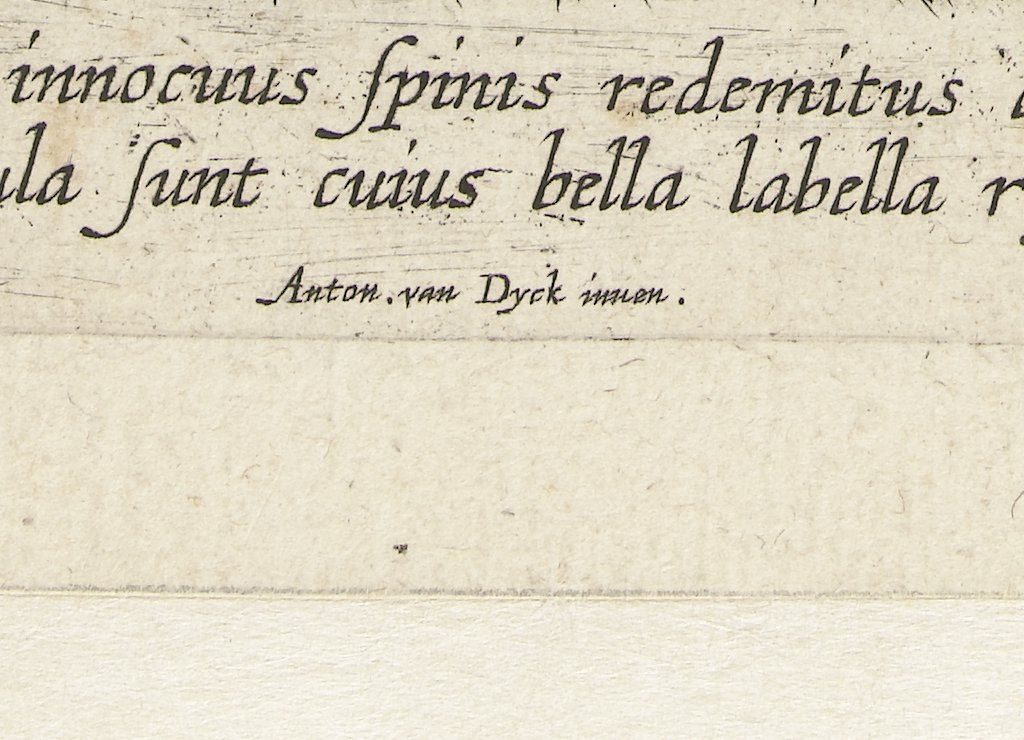 innocuus ſpinis redemitus
ſunt cuius bella labella
Anton. van Dyck inuen.